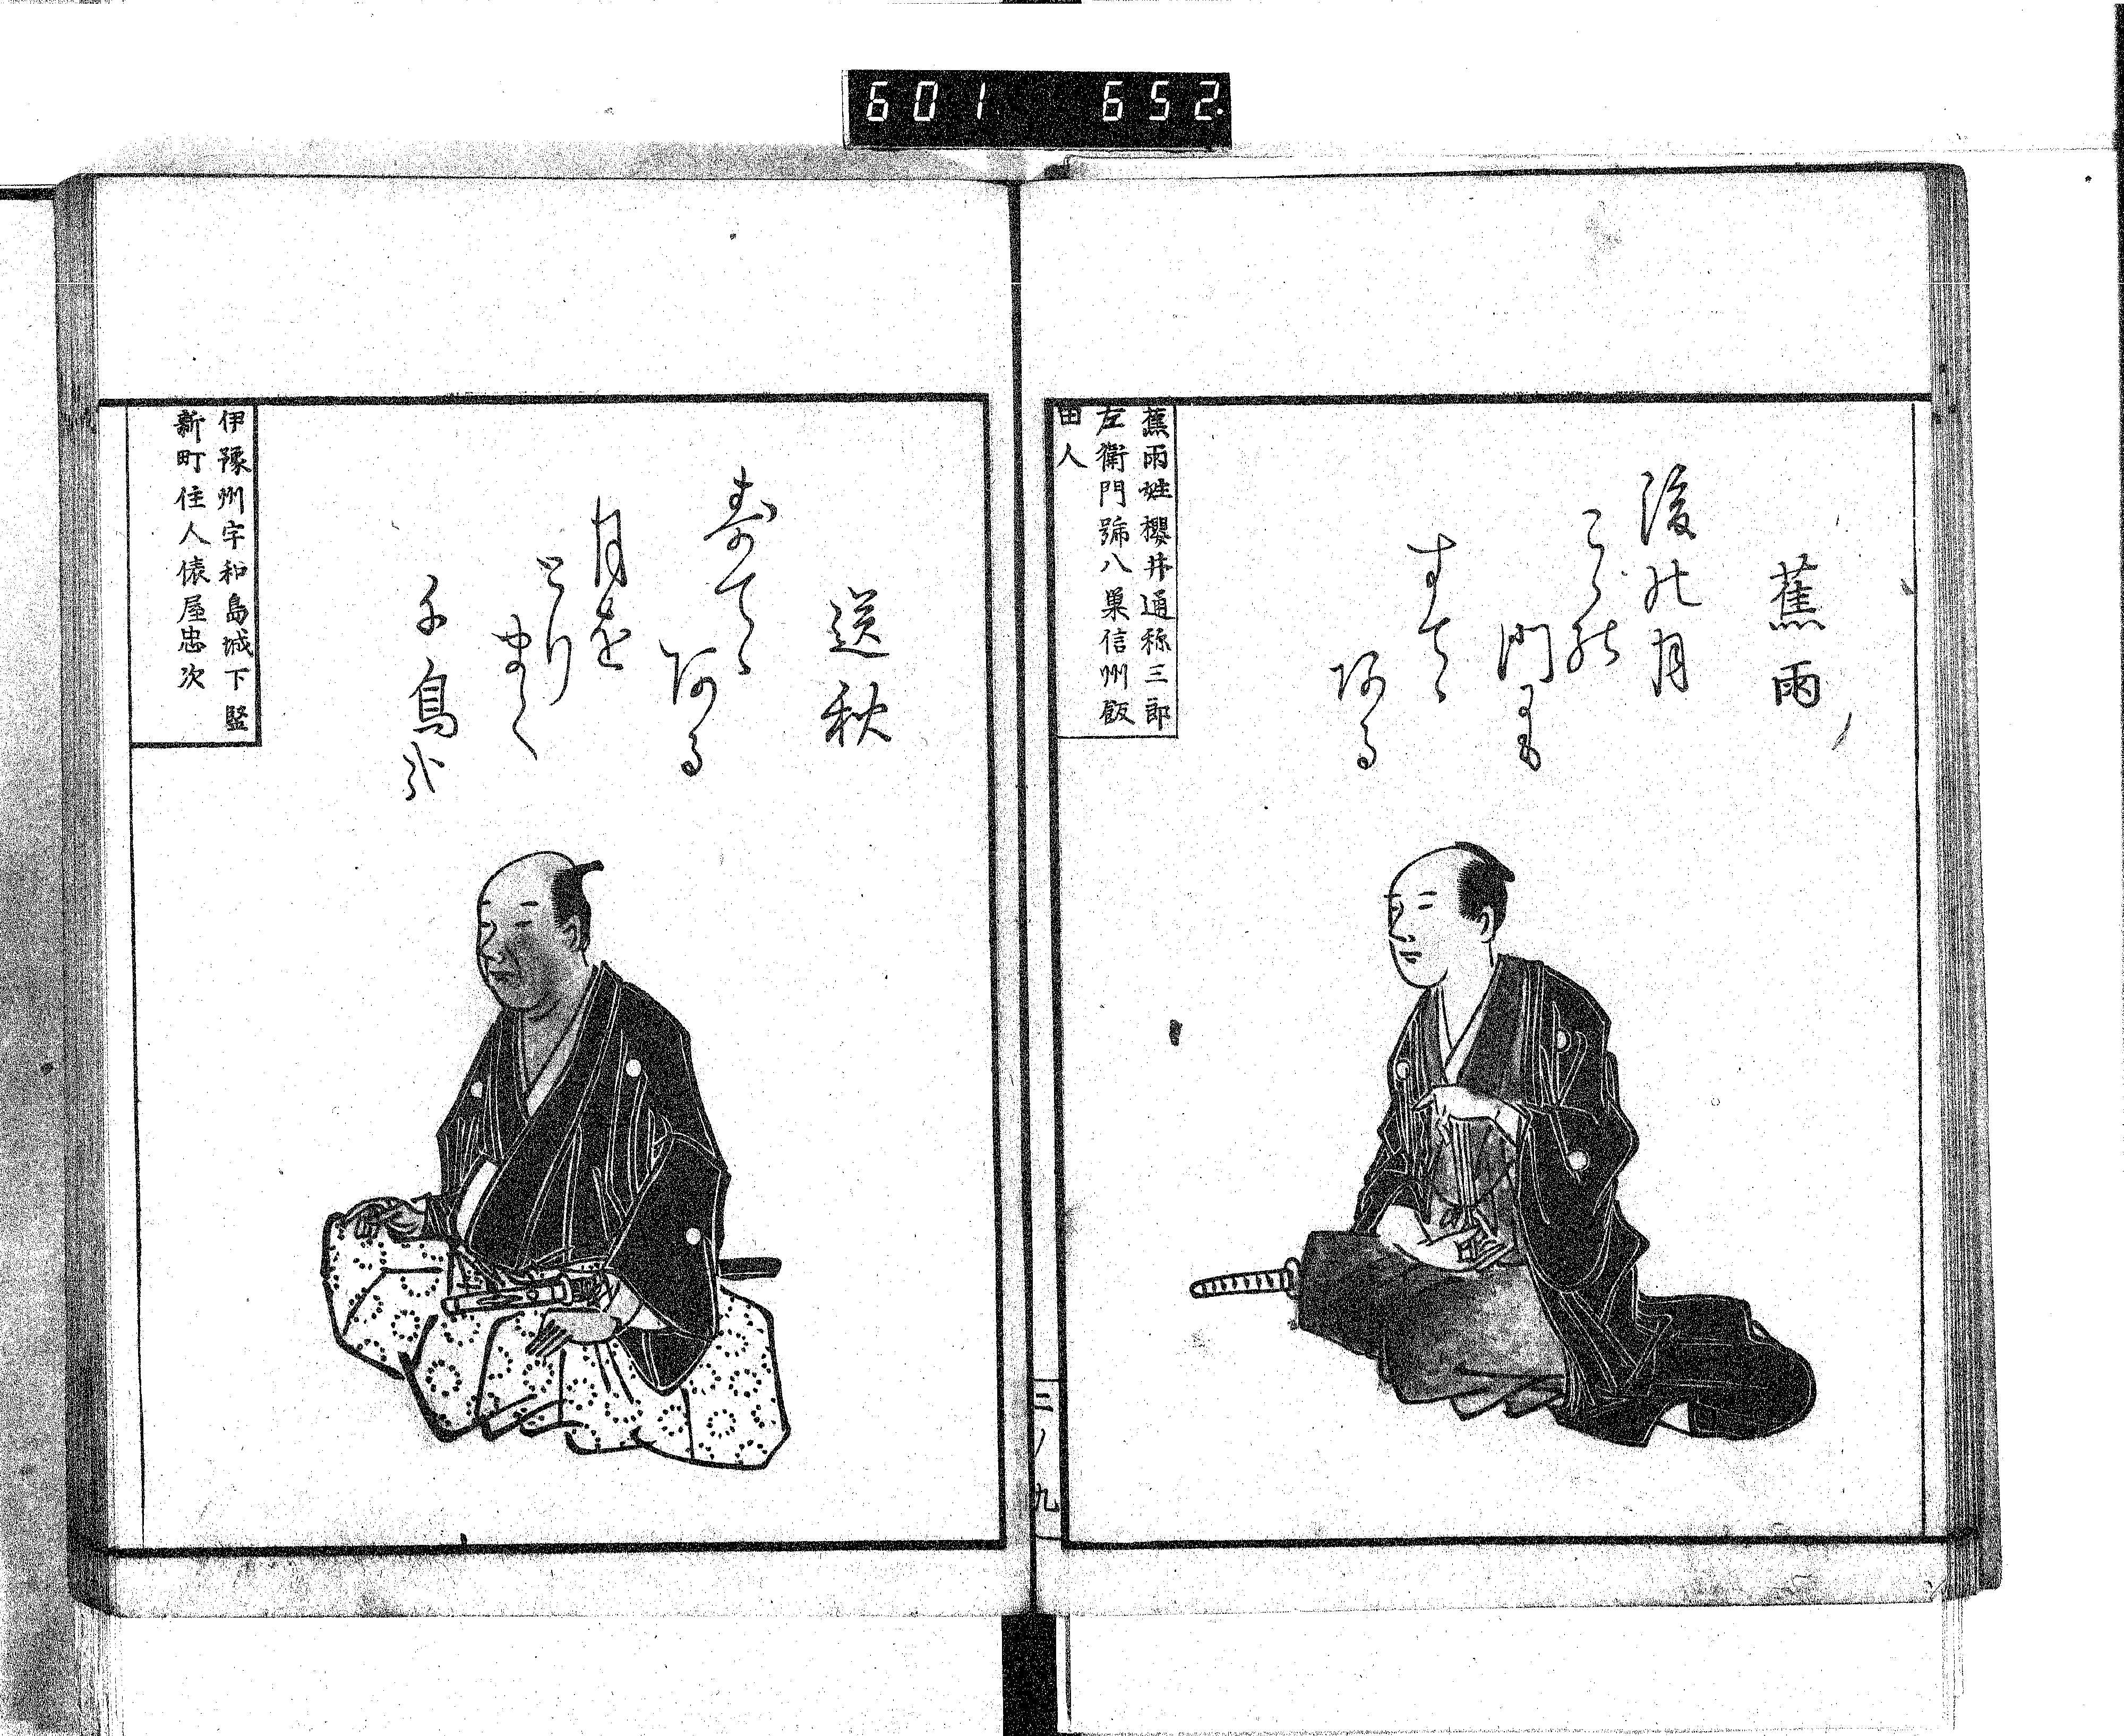 601 652
蕉雨
後の月
こゝろ
門も
すてゝ
ある
蕉雨姓櫻井通称三郎
左衛門號八巣信州飯
田人
三ノ九
送秋
すてゝ
ある
月を
とり
まく
千鳥
伊豫州宇和島城下竪
新町住人俵屋忠次